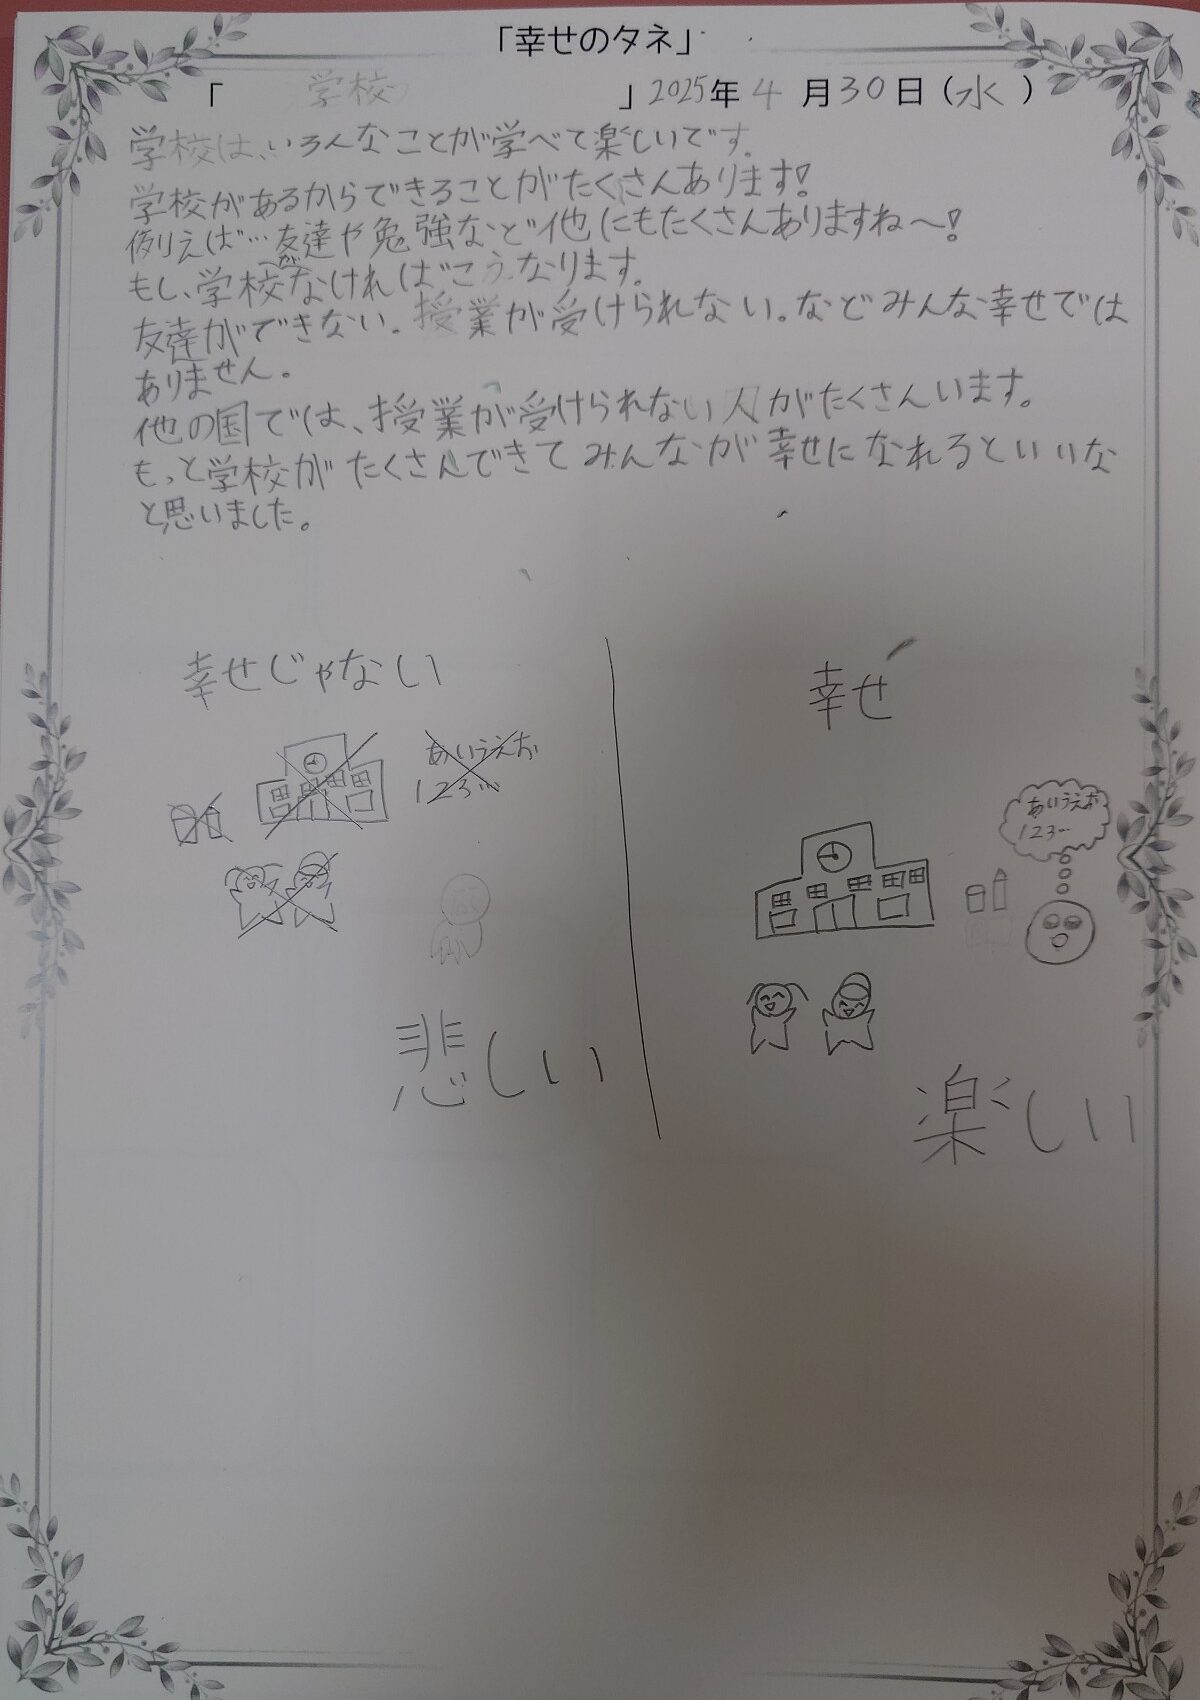 「幸せのタネ」
「 学校 」2025年4月30日(水)
学校は、いろんなことが学べて楽しいです。
学校があるからできることがたくさんあります!
例えば…友達や勉強など他にもたくさんありますね〜!
もし、学校がなければこうなります。
友達ができない。授業が受けられない。などみんな幸せでは
ありません。
他の国では、授業が受けられない人がたくさんいます。
もっと学校がたくさんできてみんなが幸せになれるといいな
と思いました。
幸せじゃない
あいうえお
123…
悲しい
幸せ
あいうえお
123…
楽しい